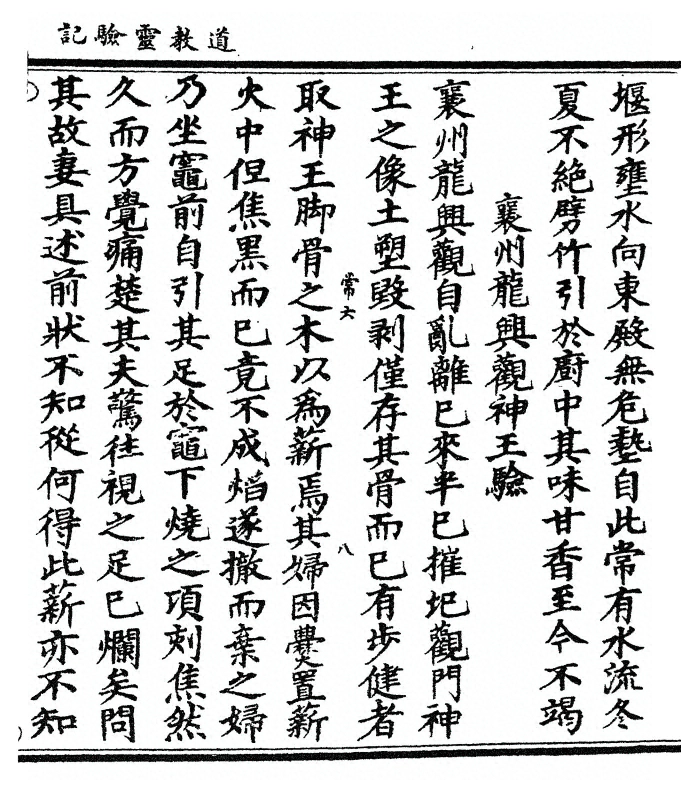 道教靈驗記
堰形壅水向東殿無危墊自此常有水流冬
夏不絶劈竹引於廚中其味甘香至今不竭
襄州龍興觀神王驗
襄州龍興觀自亂離已來半已摧圮觀門神
王之像土塑毀剥僅存其骨而已有步健者
常六
八
取神王脚骨之木以爲薪焉其婦因爨置薪
火中但焦黑而已竟不成熖遂撤而棄之婦
乃坐竈前自引其足於竈下燒之頃刻焦然
久而方覺痛楚其夫驚往視之足已爛矣問
其故妻具述前狀不知從何得此薪亦不知